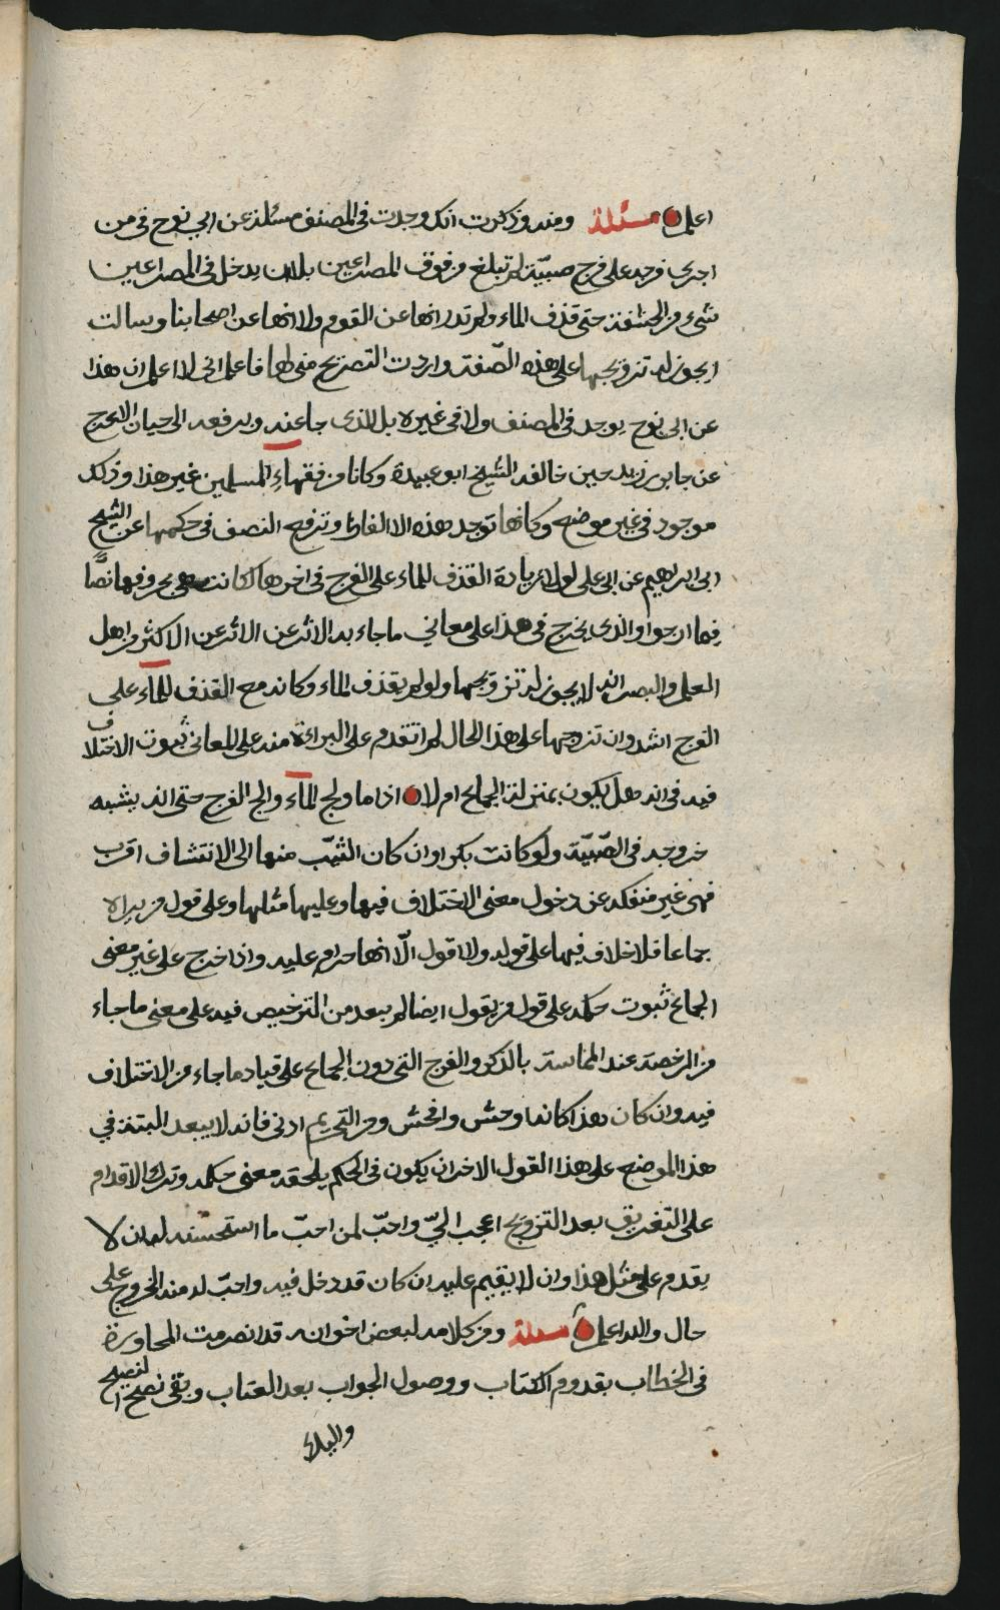 اعلم مسئلة ومنه وذكرت انك وجدت في المصنف مسئلة عن ابي نوح في من
اجرى فرجه على فرج صبيّة لم تبلغ من فوق المصراعين بلا ان يدخل في المصراعين
شيء من الحشفة حتى قذف الماء ولم تدر انها عن القوم ولا انها عن اصحابنا وسالت
ايجوز له تزويجها على هذه الصّفة واردت التصريح مني لها فاعلم اني لا اعلم ان هذا
عن ابي نوح يوجد في المصنف ولا في غيره بل الذي جا عنه ويرفعه الى حيان الاعرج
عن جابر بن زيد حين خالفه الشيخ ابو عبيدة وكانا من فقهاء المسلمين غير هذا وذلك
موجود في غير موضع وكانها توجد هذه الالفاظ وترفع النصف في حكمها عن الشيخ
ابي ابراهيم عن ابي علي لولا زيادة القذف للماء على الفرج في اخرها لكانت هي بحروفها نصًّا
فيما ارجوا والذي يخرج في هذا على معاني ما جاء به الاثر عن الاثر عن الاكثر من اهل
العلم والبصر انه لا يجوز له تزويجها ولو لم يقذف الماء وكانه مع القذف للماء على
الفرج اشد وان تزوجها على هذا الحال لم اتقدم على البراءة منه على المعاني ثبوت الاختلاف
فيه في انه هل يكون بمنزلة الجماع ام لا اذا ما ولج الماء والج الفرج حتى انه يشبه
خروجه في الصّبيّة ولو كانت بكرا وان كان الثيّب منها الى الانتشاف اقرب
فهي غير منفكة عن دخول معنى الاختلاف فيها وعليها مثلها وعلى قول من يراه
جماعا فلا خلاف فيها على قوله ولا اقول الّا انها حرام عليه واذا خرج على غير معنى
الجماع ثبوت حكمه على قول من يقول ايضا لم يبعد من الترخيص فيه على معنى ما جاء
من الرخصة عند المماسة بالذكر والفرج التي دون الجماع على قياد ما جاء من الاختلاف
فيه وان كان هذا كانه اوحش وافحش ومن التحريم ادنى فانه لا يبعد البتة في
هذا الموضع على هذا القول الاخر ان يكون في الحكم يلحقه معنى حكمه وترك الاقدام
على التفريق بعد التزويج اعجب اليّ واحبّ لمن احبّ ما استحسنه له ان لا
يقدم على مثل هذا وان لا يقيم عليه ان كان قد دخل فيه واحبّ له منه الخروج على
حال والله اعلم مسئلة ومن كلامه لبعض اخوانه قد انصرمت المحاورة
في الخطاب بقدوم الكتاب ووصول الجواب بعد العتاب وبقى نصح النصيح
والبلاء